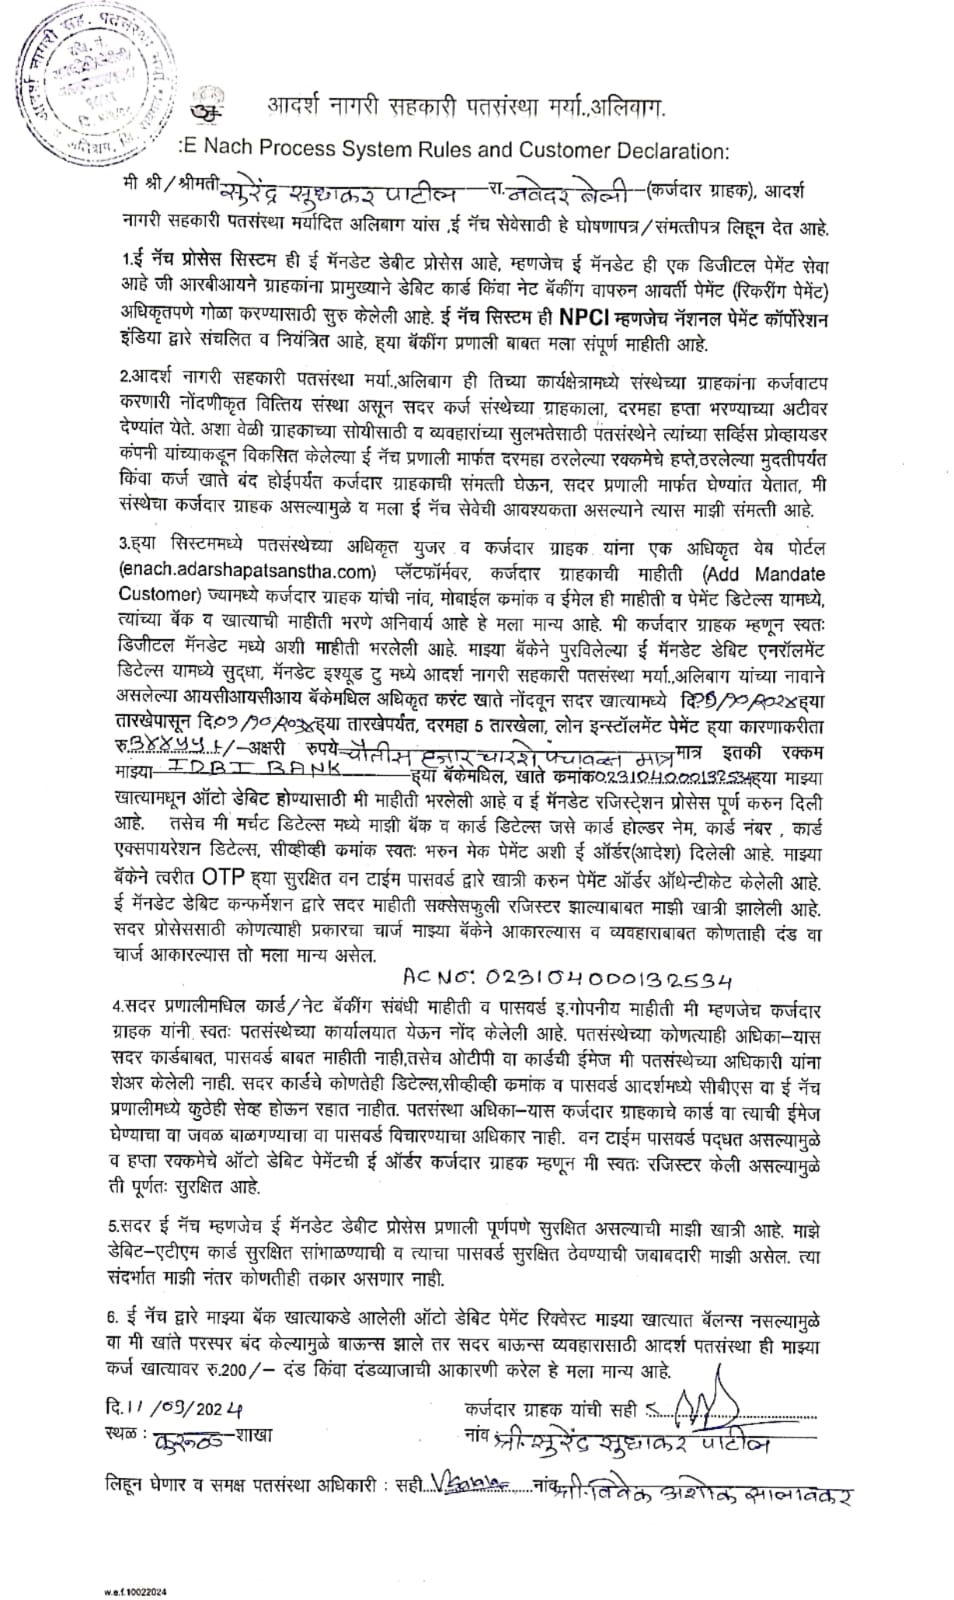 आदर्श नागरी सहकारी पतसंस्था मर्या.,अलिबाग.
:E Nach Process System Rules and Customer Declaration:
मी श्री/श्रीमती सुरेंद्र सुधाकर पाटील रा. नवेदर बेली (कर्जदार ग्राहक), आदर्श
नागरी सहकारी पतसंस्था मर्यादित अलिबाग यांस ,ई नॅच सेवेसाठी हे घोषणापत्र/संमत्तीपत्र लिहून देत आहे.
1.ई नॅच प्रोसेस सिस्टम ही ई मॅनडेट डेबीट प्रोसेस आहे, म्हणजेच ई मॅनडेट ही एक डिजीटल पेमेंट सेवा
आहे जी आरबीआयने ग्राहकांना प्रामुख्याने डेबिट कार्ड किंवा नेट बॅकींग वापरुन आवर्ती पेमेंट (रिकरींग पेमेंट)
अधिकृतपणे गोळा करण्यासाठी सुरु केलेली आहे. ई नॅच सिस्टम ही NPCI म्हणजेच नॅशनल पेमेंट कॉर्पोरेशन
इंडिया द्वारे संचलित व नियंत्रित आहे, ह्या बॅकींग प्रणाली बाबत मला संपूर्ण माहीती आहे.
2.आदर्श नागरी सहकारी पतसंस्था मर्या.,अलिबाग ही तिच्या कार्यक्षेत्रामध्ये संस्थेच्या ग्राहकांना कर्जवाटप
करणारी नोंदणीकृत वित्तिय संस्था असून सदर कर्ज संस्थेच्या ग्राहकाला, दरमहा हप्ता भरण्याच्या अटीवर
देण्यांत येते. अशा वेळी ग्राहकाच्या सोयीसाठी व व्यवहारांच्या सुलभतेसाठी पतसंस्थेने त्यांच्या सर्व्हिस प्रोव्हायडर
कंपनी यांच्याकडून विकसित केलेल्या ई नॅच प्रणाली मार्फत दरमहा ठरलेल्या रक्कमेचे हप्ते,ठरलेल्या मुदतीपर्यंत
किंवा कर्ज खाते बंद होईपर्यंत कर्जदार ग्राहकाची संमत्ती घेऊन, सदर प्रणाली मार्फत घेण्यांत येतात, मी
संस्थेचा कर्जदार ग्राहक असल्यामुळे व मला ई नॅच सेवेची आवश्यकता असल्याने त्यास माझी संमत्ती आहे.
3.ह्या सिस्टममध्ये पतसंस्थेच्या अधिकृत युजर व कर्जदार ग्राहक यांना एक अधिकृत वेब पोर्टल
(enach.adarshapatsanstha.com) प्लॅटफॉर्मवर, कर्जदार ग्राहकाची माहीती (Add Mandate
Customer) ज्यामध्ये कर्जदार ग्राहक यांची नांव, मोबाईल कमांक व ईमेल ही माहीती व पेमेंट डिटेल्स यामध्ये,
त्यांच्या बॅक व खात्याची माहीती भरणे अनिवार्य आहे हे मला मान्य आहे. मी कर्जदार ग्राहक म्हणून स्वतः
डिजीटल मॅनडेट मध्ये अशी माहीती भरलेली आहे. माझ्या बॅकेने पुरविलेल्या ई मॅनडेट डेबिट एनरॉलमेंट
डिटेल्स यामध्ये सुद्धा, मॅनडेट इश्यूड टु मध्ये आदर्श नागरी सहकारी पतसंस्था मर्या.,अलिबाग यांच्या नावाने
असलेल्या आयसीआयसीआय बॅकेमधिल अधिकृत करंट खाते नोंदवून सदर खात्यामध्ये दि.०५/१०/२०२४ ह्या
तारखेपासून दि.०५/१०/२०३४ ह्या तारखेपर्यंत, दरमहा 5 तारखेला, लोन इन्स्टॉलमेंट पेमेंट ह्या कारणाकरीता
रु.३४४५५/-अक्षरी रुपये चौतीस हजार चारशे पंचावन्न मात्र मात्र इतकी रक्कम
माझ्या IDBI BANK ह्या बॅकेमधिल, खाते कमांक 023104000132534 ह्या माझ्या
खात्यामधून ऑटो डेबिट होण्यासाठी मी माहीती भरलेली आहे व ई मॅनडेट रजिस्ट्रेशन प्रोसेस पूर्ण करुन दिली
आहे. तसेच मी मर्चट डिटेल्स मध्ये माझी बॅक व कार्ड डिटेल्स जसे कार्ड होल्डर नेम, कार्ड नंबर , कार्ड
एक्सपायरेशन डिटेल्स, सीव्हीव्ही कमांक स्वतः भरुन मेक पेमेंट अशी ई ऑर्डर(आदेश) दिलेली आहे. माझ्या
बॅकेने त्वरीत OTP ह्या सुरक्षित वन टाईम पासवर्ड द्वारे खात्री करुन पेमेंट ऑर्डर ऑथेन्टीकेट केलेली आहे.
ई मॅनडेट डेबिट कन्फर्मेशन द्वारे सदर माहीती सक्सेसफुली रजिस्टर झाल्याबाबत माझी खात्री झालेली आहे.
सदर प्रोसेससाठी कोणत्याही प्रकारचा चार्ज माझ्या बॅकेने आकारल्यास व व्यवहाराबाबत कोणताही दंड वा
चार्ज आकारल्यास तो मला मान्य असेल.
AC NO: 0231040000132534
4.सदर प्रणालीमधिल कार्ड/नेट बॅकींग संबंधी माहीती व पासवर्ड इ.गोपनीय माहीती मी म्हणजेच कर्जदार
ग्राहक यांनी स्वतः पतसंस्थेच्या कार्यालयात येऊन नोंद केलेली आहे. पतसंस्थेच्या कोणत्याही अधिका-यास
सदर कार्डबाबत, पासवर्ड बाबत माहीती नाही,तसेच ओटीपी वा कार्डची ईमेज मी पतसंस्थेच्या अधिकारी यांना
शेअर केलेली नाही. सदर कार्डचे कोणतेही डिटेल्स,सीव्हीव्ही कमांक व पासवर्ड आदर्शमध्ये सीबीएस वा ई नॅच
प्रणालीमध्ये कुठेही सेव्ह होऊन रहात नाहीत. पतसंस्था अधिका-यास कर्जदार ग्राहकाचे कार्ड वा त्याची ईमेज
घेण्याचा वा जवळ बाळगण्याचा वा पासवर्ड विचारण्याचा अधिकार नाही. वन टाईम पासवर्ड पद्धत असल्यामुळे
व हप्ता रक्कमेचे ऑटो डेबिट पेमेंटची ई ऑर्डर कर्जदार ग्राहक म्हणून मी स्वतः रजिस्टर केली असल्यामुळे
ती पूर्णतः सुरक्षित आहे.
5.सदर ई नॅच म्हणजेच ई मॅनडेट डेबीट प्रोसेस प्रणाली पूर्णपणे सुरक्षित असल्याची माझी खात्री आहे. माझे
डेबिट-एटीएम कार्ड सुरक्षित सांभाळण्याची व त्याचा पासवर्ड सुरक्षित ठेवण्याची जबाबदारी माझी असेल. त्या
संदर्भात माझी नंतर कोणतीही तकार असणार नाही.
6. ई नॅच द्वारे माझ्या बॅक खात्याकडे आलेली ऑटो डेबिट पेमेंट रिक्वेस्ट माझ्या खात्यात बॅलन्स नसल्यामुळे
वा मी खांते परस्पर बंद केल्यामुळे बाऊन्स झाले तर सदर बाऊन्स व्यवहारासाठी आदर्श पतसंस्था ही माझ्या
कर्ज खात्यावर रु.200/- दंड किंवा दंडव्याजाची आकारणी करेल हे मला मान्य आहे.
दि.11/09/2024 कर्जदार ग्राहक यांची सही
स्थळ : कुरुळ-शाखा नांव श्री. सुरेंद्र सुधाकर पाटील
लिहून घेणार व समक्ष पतसंस्था अधिकारी : सही नांव श्री. विवेक अशोक सालावकर
w.e.f.10022024